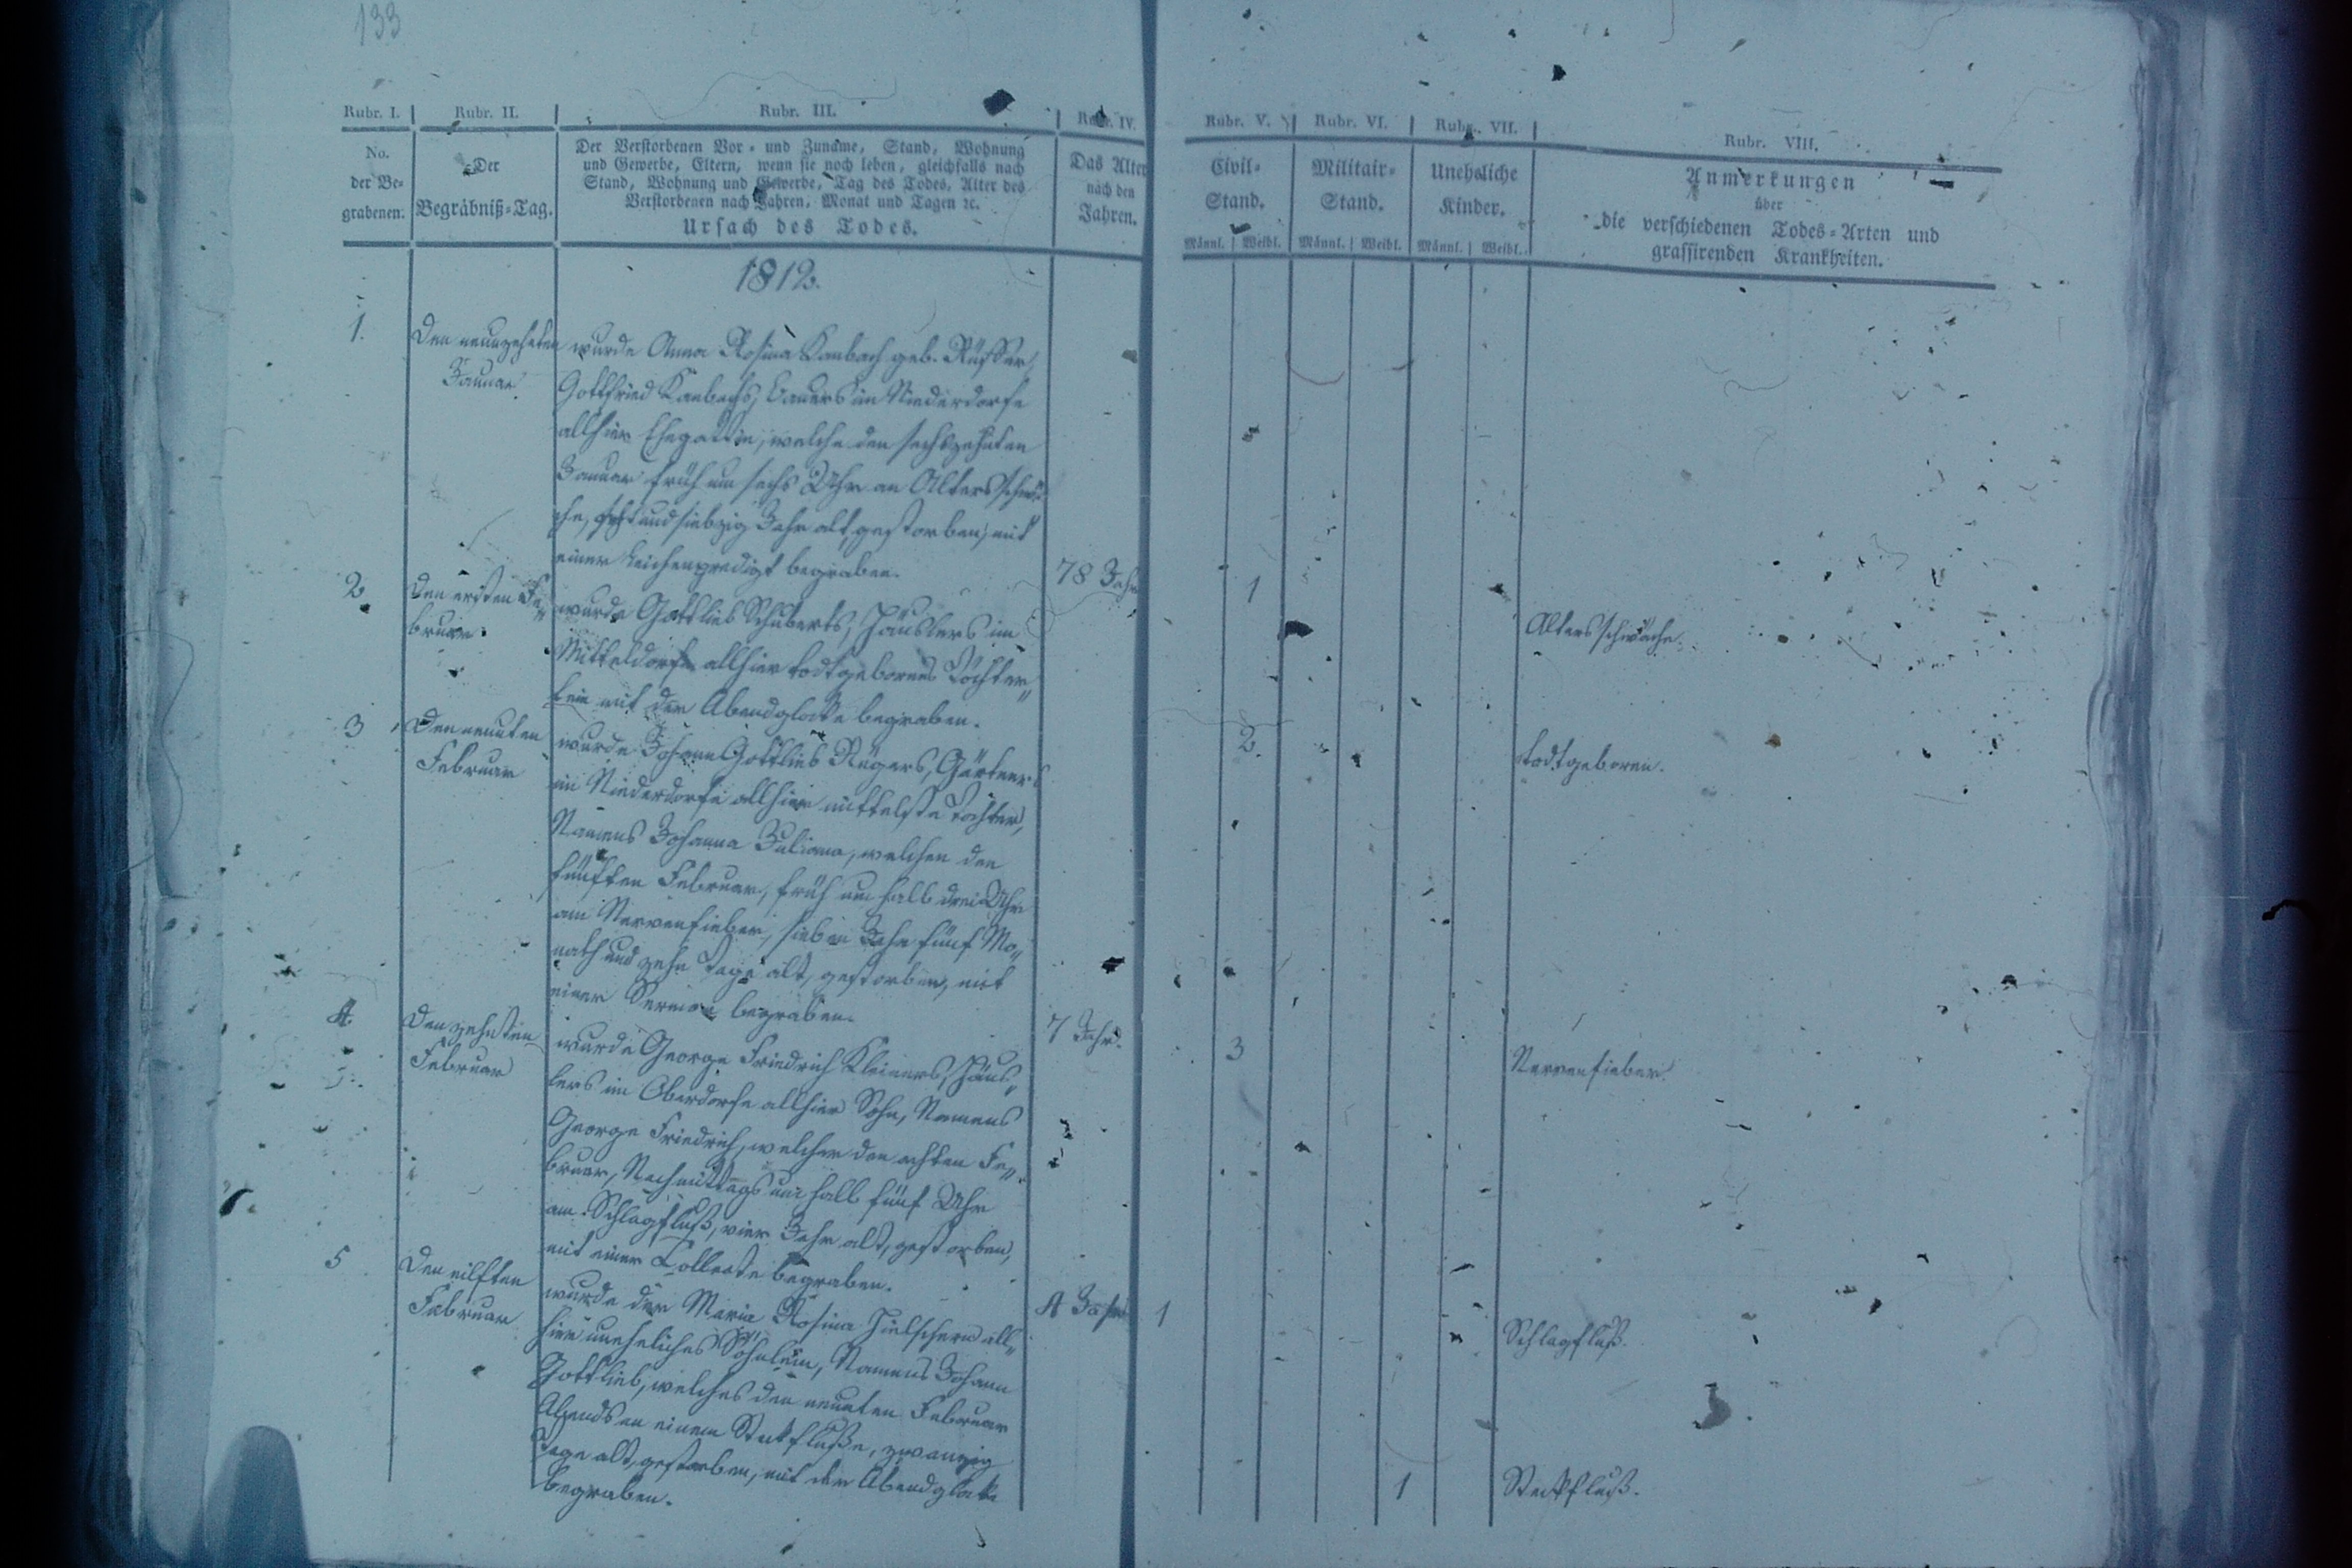 133
Rubr. I. Rubr. II. Rubr. III. Rubr. IV. Rubr. V. Rubr. VI. Rubr. VII. Rubr. VIII.
No. der Be= grabenen.
Der Begräbniß=Tag.
Der Verstorbenen Vor= und Zuname, Stand, Wohnung
und Gewerbe, Eltern, wenn sie noch leben, gleichfalls nach
Stand, Wohnung und Gewerbe, Tag des Todes, Alter des
Verstorbenen nach Jahren, Monat und Tagen ꝛc.
Ursach des Todes.
Das Alter
nach den
Jahren.
Civil=
Stand.
Männl. Weibl.
Militair=
Stand.
Männl. Weibl.
Unehsliche
Kinder.
Männl. Weibl.
Anmerkungen
über
die verschiedenen Todes=Arten und
grassirenden Krankheiten.
1812.
1.
Den neunzehnten
Januar
wurde Anna Rosina Kambach geb.
Gottfried Kambachs, Bauers im Niederdorfe
allhier Ehegattin, welche den sechszehnten
Januar früh um sechs Uhr an Altersschwä=
che, acht und siebzig Jahr alt gestorben, mit
einer Leichenpredigt begraben.
78 Jahr
1
Altersschwäche.
2
Den ersten Fe=
bruar
wurde Gottlieb Schuberts, Häuslers im
Mitteldorfe allhier todtgebornes Töchter=
lein mit der Abendglocke begraben.
2.
todtgeboren.
3
Den neunten
Februar
wurde Johann Gottlieb Rügers, Gärtners
im Niederdorfe allhier mittelste Tochter,
Namens Johanna Juliana, welchen den
fünften Februar, früh um halb drei Uhr
am Nervenfieber, sieben Jahr fünf Mo=
nath und zehn Tage alt, gestorben, mit
einer Sermon begraben.
7 Jahr.
3
Nervenfieber.
4
Den zehnten
Februar
wurde George Friedrich Kleiners, Häus=
lers im Oberdorfe allhier Sohn, Namens
George Friedrich, welcher den achten Fe=
bruar, Nachmittags um halb fünf Uhr
am Schlagfluß, vier Jahr alt, gestorben,
mit einer Collecte begraben.
4 Jahr
1
Schlagfluß.
5
Den eilften
Februar
wurde der Maria Rosina Hielschern all=
hier uneheliches Söhnlein, Namens Johann
Gottlieb, welches den neunten Februar
Abends an einem Steckfluße, zwanzig
Tage alt, gestorben, mit der Abendglocke
begraben.
1
Steckfluß.